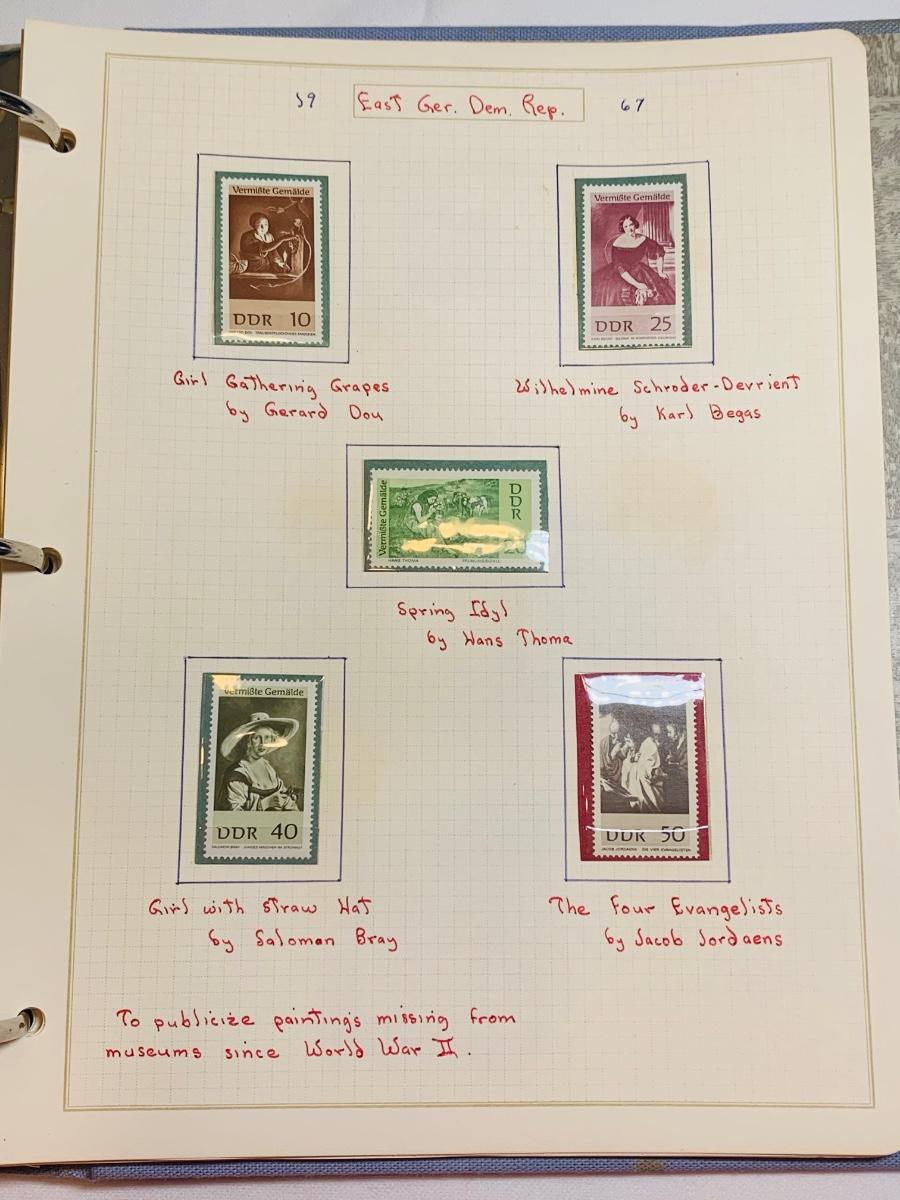 59 East Ger. Dem. Rep. 67
Vermißte Gemälde
DDR 10
Vermißte Gemälde
DDR 25
Girl Gathering Grapes
by Gerard Dou
Wilhelmine Schroder-Devrient
by Karl Begas
Vermißte Gemälde
DDR
HANS THOMA
Spring Idyl
by Hans Thoma
Vermißte Gemälde
DDR 40
SALOMON BRAY · JUNGES MÄDCHEN IM STROHHUT
DDR 50
JACOB JORDAENS · DIE VIER EVANGELISTEN
Girl with Straw Hat
by Saloman Bray
The Four Evangelists
by Jacob Jordaens
To publicize paintings missing from
museums since World War II.